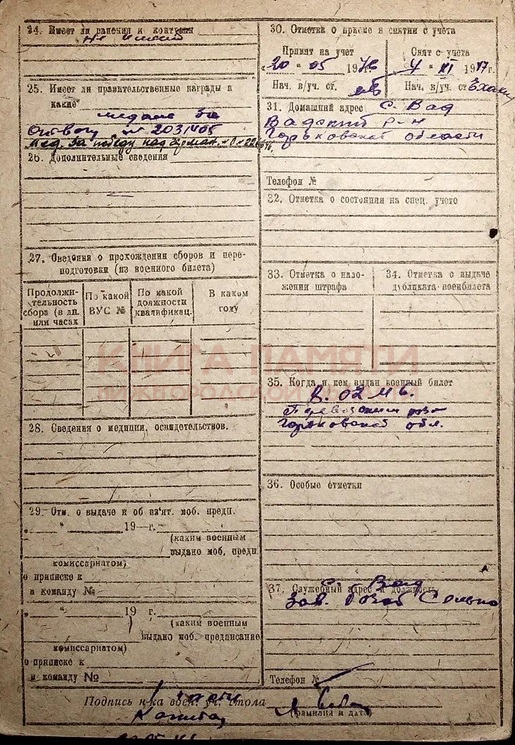 24. Имеет ли ранения и контузии
Не имеет
25. Имеет ли правительственные награды и
какие
медаль За
№ 2031405
Мед. За победу над Герман.
26. Дополнительные сведения
27. Сведения о прохождении сборов и пере-
подготовки (из военного билета)
Продолжи-
тельность
сбора (в дн.
или часах
По какой
ВУС №
По какой
должности
квалификац.
В каком
году
28. Сведения о медицин. освидетельствов.
29. Отм. о выдаче и об из'ят. моб. предп.
19 г.
(каким военным
выдано моб. предп
комиссариатом)
о приписке к
в команду №
19 г.
(каким военным
выдано моб. предписание
комиссариатом)
о приписке к
в команду №
30. Отметка о приеме и снятии с учета
Принят на учет
Снят с учета
20 " 05 194
4 " XI 19
Нач. в/уч. ст.
Нач. в/уч. ст.
31. Домашний адрес с. Вад
Вадский р-н
Горьковской области
Телефон №
32. Отметка о состоянии на спец. учете
33. Отметка о нало-
жении штрафа
34. Отметка о выдаче
дубликата военбилета
35. Когда и кем выдан военный билет
Горьковской обл.
36. Особые отметки
37. Служебный адрес и должность
с. Вад
Зав.
Телефон №
Подпись н-ка воен. уч. стола
(фамилия и дата)
КНИГА ПАМЯТИ
НИЖЕГОРОДСКОЙ